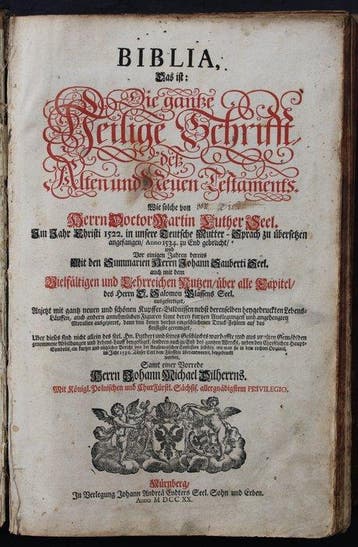 BIBLIA,
Das ist:
Die gantze
Heilige Schrifft,
deß
Alten und Neuen Testaments.
Wie solche von
Herrn Doctor Martin Luther Seel.
Im Jahr Christi 1522. in unsere Teutsche Mutter-Sprach zu übersetzen
angefangen / Anno 1534. zu End gebracht /
und
Vor einigen Jahren bereits
Mit den Summarien Herrn Johann Sauberti Seel.
auch mit dem
Vielfältigen und Lehrreichen Nutzen / über alle Capitel /
des Herrn D. Salomon Glassens Seel.
außgefertiget,
Anjetzt mit gantz neuen und schönen Kupffer-Bildnissen nebst derenselben beygedruckten Lebens-
Läuffen, auch andern anmuthigen Figuren samt deren kurtzen Auslegungen und angehengten
außgezieret, dann von denen vorhin eingeschlichenen Druck-Fehlern auf das
fleissigste gereiniget,
Uber dieses sind nicht allein des
und Lebens-Lauff beygefüget, sondern auch zu End des gantzen Wercks, neben den
im Jahr 1530.
worden,
Samt einer Vorrede
Herrn Johann Michael Dilherrns.
Mit Königl. Polnischen und ChurFürstl. Sächsis. allergnädigstem PRIVILEGIO.
Nürnberg /
In Verlegung Johann Andreä Endters Seel. Sohn und Erben.
Anno M DCC XX.